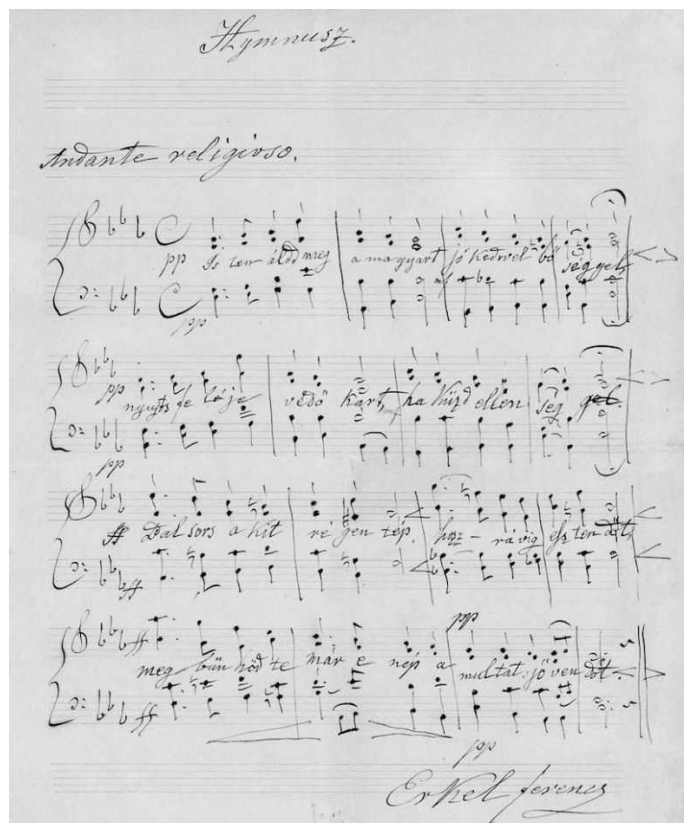 Hymnusz.
Andante religioso.
pp Is ten áldd meg a magyart jó kedvvel bő séggel
pp
pp nyujts fe léje védő kart, ha küzd ellen ség gel.
pp
ff Bal sors a kit ré gen tép, hoz - rá víg esz ten dőt,
ff
pp
ff meg bűn hőd te már e nép a multat, jö ven dőt.
ff
pp
Erkel Ferencz